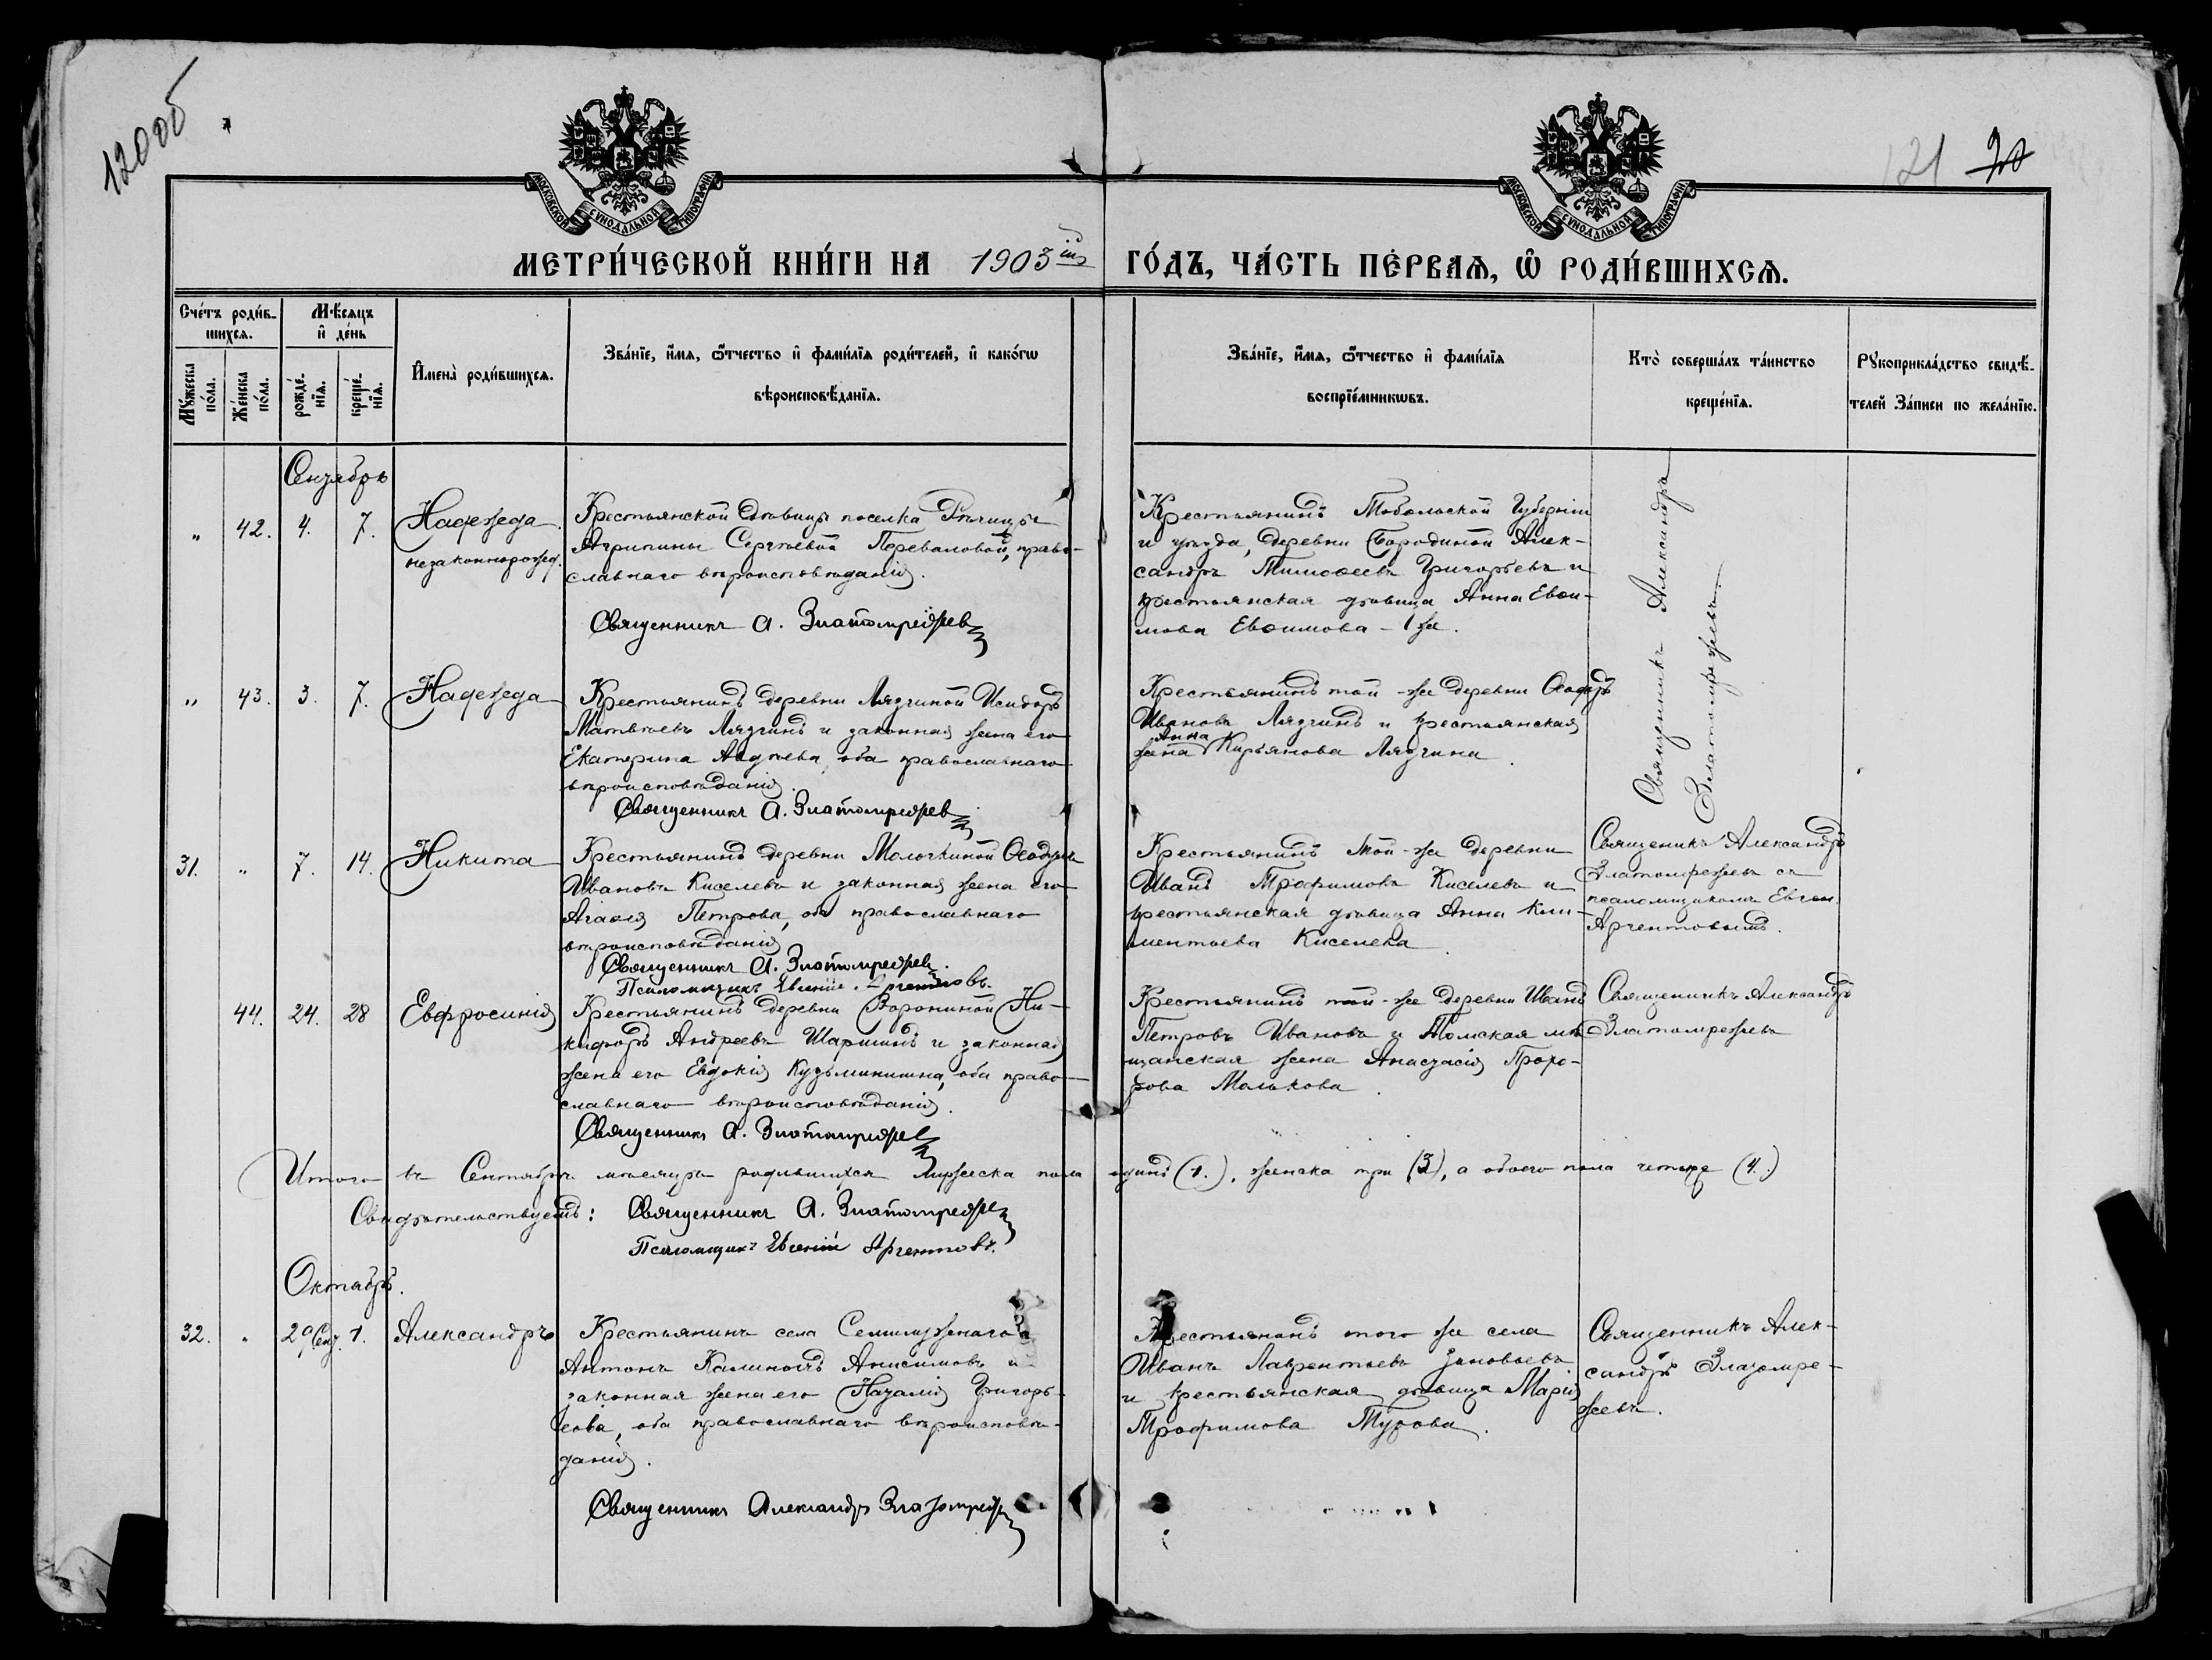 120об
121 20
МОСКОВСКОЙ СѴНОДАЛЬНОЙ ТИПОГРАФІИ
МОСКОВСКОЙ СѴНОДАЛЬНОЙ ТИПОГРАФІИ
МЕТРИ́ЧЕСКОЙ КНИ́ГИ НА 1903ій ГО́ДЪ, ЧА́СТЬ ПЕ́РВАѦ, Ѡ҆ РОДИ́ВШИХСѦ.
Сче́тъ роди́в-
шихсѧ.
Мѣ́сѧцъ
и҆ де́нь
Мꙋ́жеска
по́ла.
Же́нска
по́ла.
рожде́-
нїѧ.
креще́-
нїѧ.
И҆мена̀ роди́вшихсѧ.
Зва́нїе, и҆́мѧ, ѻ҆́тчество и҆ фами́лїѧ роди́телей, и҆ како́гѡ
вѣроисповѣ́данїѧ.
Зва́нїе, и҆́мѧ, ѻ҆́тчество и҆ фами́лїѧ
воспрїе́мникѡвъ.
Кто̀ соверша́лъ та́инство
креще́нїѧ.
Рꙋкоприкла́дство свидѣ́-
телей За́писи по жела́нїю.
Сентябрь
" 42. 4. 7. Надежда
незаконнорожд.
Крестьянской дѣвицы поселка Рѣчицы
Агрипины Сергѣевой Переваловой, право-
славнаго вѣроисповѣданія.
Священникъ А. Златомрежев
Крестьянинъ Тобольской Губерніи
и уѣзда, деревни Бородиной Алек-
сандръ Тимоѳеевъ Григорьевъ и
крестьянская дѣвица Анна Евѳи-
мова Евѳимова - 1 я.
Священникъ Александръ
Златомрежевъ
" 43. 3. 7. Надежда
Крестьянинъ деревни Лязгиной Исидоръ
Матвѣевъ Лязгинъ и законная жена его
Екатерина Авдѣева, оба православнаго
вѣроисповѣданія.
Священникъ А. Златомрежев
Крестьянинъ той-же деревни Ѳеодоръ
Ивановъ Лязгинъ и крестьянская
жена Анна Кирьянова Лязгина.
31. " 7. 14. Никита
Крестьянинъ деревни Молочкиной Ѳеодоръ
Ивановъ Киселевъ и законная жена его
Агаѳія Петрова, оба православнаго
вѣроисповѣданія
Священникъ А. Златомрежев.
Псаломщикъ Евгеній Аргентовъ.
Крестьянинъ той-же деревни
Иванъ Трофимовъ Киселевъ и
крестьянская дѣвица Анна Кли-
ментьева Киселева.
Священикъ Александръ
Златомрежевъ съ
псаломщикомъ Евген.
Аргентовымъ.
44. 24. 28 Евфросинія
Крестьянинъ деревни Ворониной Ни-
кифоръ Андреевъ Шаршинъ и законная
жена его Евдокія Кузьминишна, оба право-
славнаго вѣроисповѣданія.
Священникъ А. Златомрежев
Крестьянинъ той-же деревни Иванъ
Петровъ Ивановъ и Томская мѣ-
щанская жена Анастасія Прохо-
рова Малькова.
Священникъ Александръ
Златомрежевъ
Итого въ Сентябрѣ мѣсяцѣ родившихся мужеска пола одинъ (1.), женска три (3), а обоего пола четыре (4.)
Свидѣтельствуемъ: Священникъ А. Златомрежев
Псаломщикъ Евгеній Аргентовъ.
Октябрь.
32. " 29 Сент. 1. Александръ
Крестьянинъ села Семилужнаго
Антонъ Калиновъ Анисимовъ и
законная жена его Наталія Григорь-
ева, оба православнаго вѣроисповѣ-
данія.
Священникъ Александръ Златомрежев
Крестьянинъ того же села
Иванъ Лаврентьевъ Зиновьевъ
и крестьянская дѣвица Марія
Трофимова Турова.
Священникъ Алек-
сандръ Златомре-
жевъ.